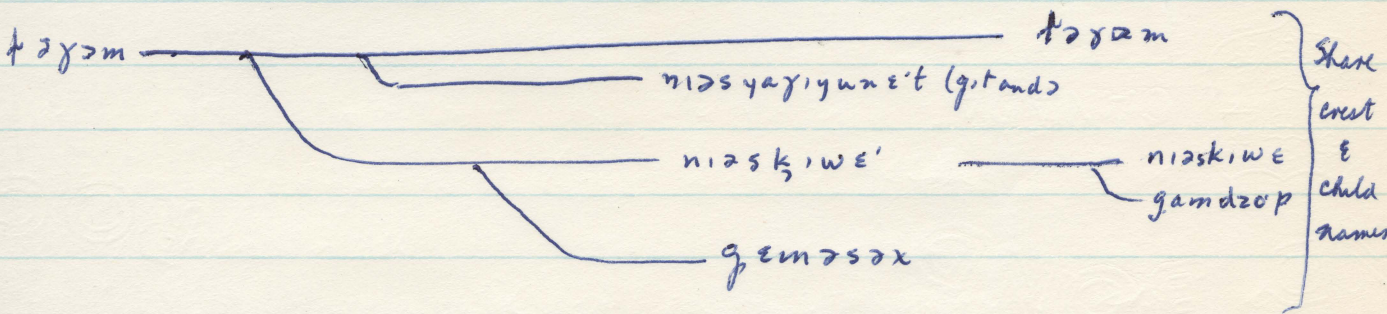 ɫəɣəm ɫəɣəm
nıəsyaɣıyunɛ't (gıtandə
nıəsḵıwɛ' nıəskıwɛ
gamdzəp
gɛməsəx
Share
crest
&
child
names